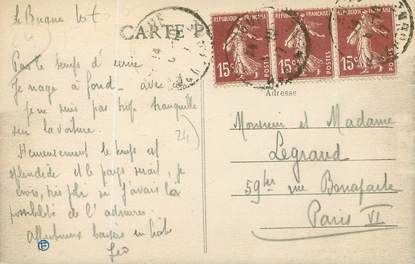 Le Bugue
CARTE P
RÉPUBLIQUE FRANÇAISE
15c POSTES
RÉPUBLIQUE FRANÇAISE
15c POSTES
RÉPUBLIQUE FRANÇAISE
15c POSTES
Adresse
Je nage à fond avec
je ne suis pas trop tranquille
sur la voiture.
24
Heureusement le temps est
splendide et le pays serait, je
crois, très joli si j'avais la
possibilité de l'admirer.
Affectueux baisers en hâte
Geo
Monsieur et Madame
Legrand
59 ter rue Bonaparte
Paris VI